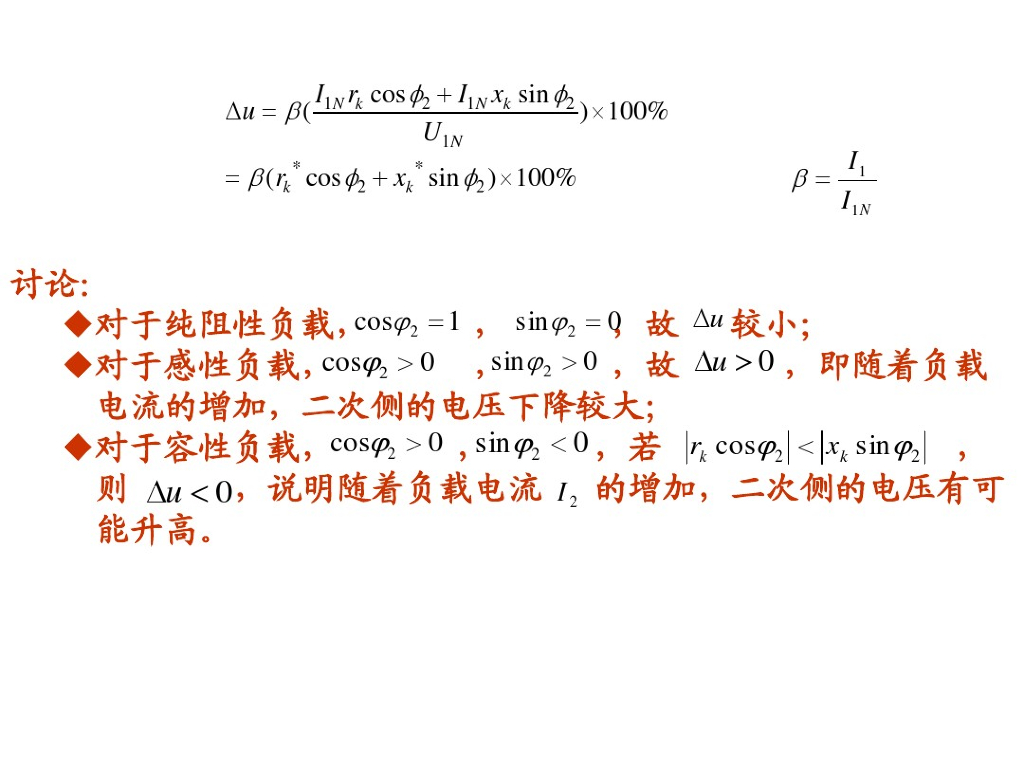 Δu = β( (I₁N rₖ cosϕ₂ + I₁N xₖ sinϕ₂) / U₁N )×100%
= β(rₖ* cosϕ₂ + xₖ* sinϕ₂)×100%    β = I₁ / I₁N
讨论:
◆对于纯阻性负载, cosφ₂ = 1 ， sinφ₂ = 0，故 Δu 较小;
◆对于感性负载, cosφ₂ > 0 , sinφ₂ > 0 ，故 Δu > 0 ，即随着负载
电流的增加，二次侧的电压下降较大;
◆对于容性负载， cosφ₂ > 0 , sinφ₂ < 0，若 |rₖ cosφ₂| < |xₖ sinφ₂| ，
则 Δu < 0，说明随着负载电流 I₂ 的增加，二次侧的电压有可
能升高。